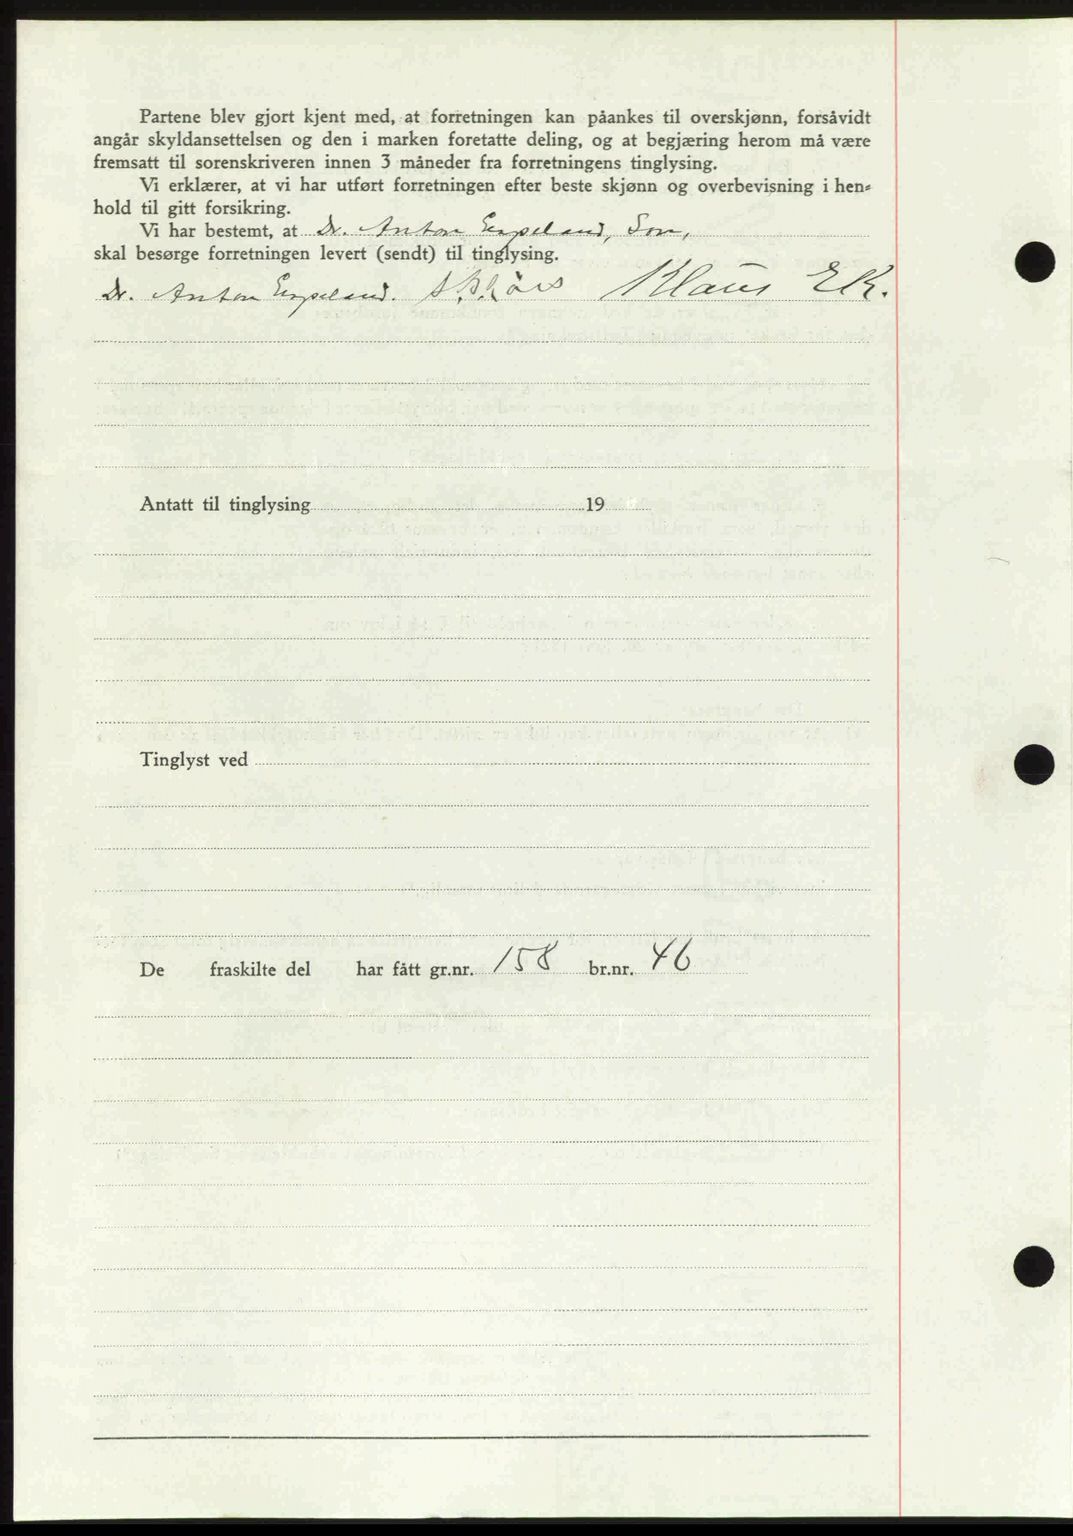 Partene blev gjort kjent med, at forretningen kan påankes til overskjønn, forsåvidt
angår skyldansettelsen og den i marken foretatte deling, og at begjæring herom må være
fremsatt til sorenskriveren innen 3 måneder fra forretningens tinglysing.
Vi erklærer, at vi har utført forretningen efter beste skjønn og overbevisning i hen-
hold til gitt forsikring.
Vi har bestemt, at Dr. Anton Espeland, Son,
skal besørge forretningen levert (sendt) til tinglysing.
Dr. Anton Espeland. Klaus Ek.
Antatt til tinglysing 19
Tinglyst ved
De fraskilte del har fått gr.nr. 158 br.nr. 46